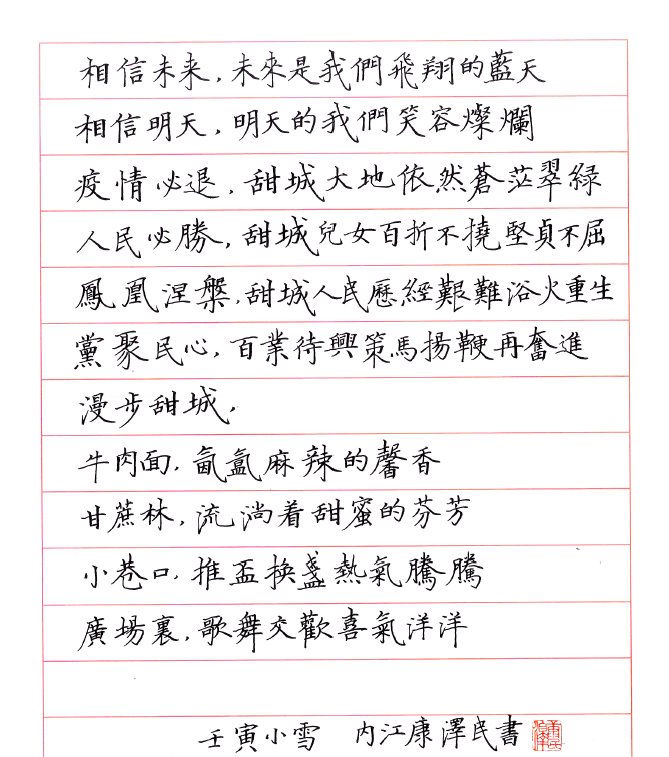 相信未来，未來是我們飛翔的藍天
相信明天，明天的我們笑容燦爛
疫情必退，甜城大地依然蒼茫翠緑
人民必勝，甜城兒女百折不撓堅貞不屈
鳳凰涅槃，甜城人民歷經艱難浴火重生
黨聚民心，百業待興策馬揚鞭再奮進
漫步甜城，
牛肉面，氤氳麻辣的馨香
甘蔗林，流淌着甜蜜的芬芳
小巷口，推盃換盞熱氣騰騰
廣場裏，歌舞交歡喜氣洋洋
壬寅小雪　内江康澤民書